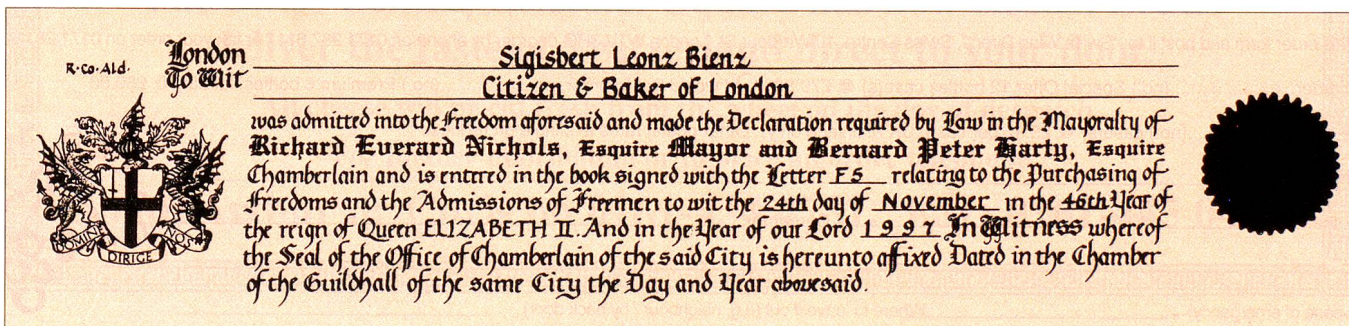 R·Co·Ald.
London
To Wit
Sigisbert Leonz Bienz
Citizen & Baker of London
was admitted into the Freedom aforesaid and made the Declaration required by Law in the Mayoralty of
Richard Everard Nichols, Esquire Mayor and Bernard Peter Harty, Esquire
Chamberlain and is entered in the book signed with the Letter F5 relating to the Purchasing of
Freedoms and the Admissions of Freemen to wit the 24th day of November in the 46th Year of
the reign of Queen ELIZABETH II. And in the Year of our Lord 1997 In Witness whereof
the Seal of the Office of Chamberlain of the said City is hereunto affixed Dated in the Chamber
of the Guildhall of the same City the Day and Year abovesaid.
DOMINE DIRIGE NOS